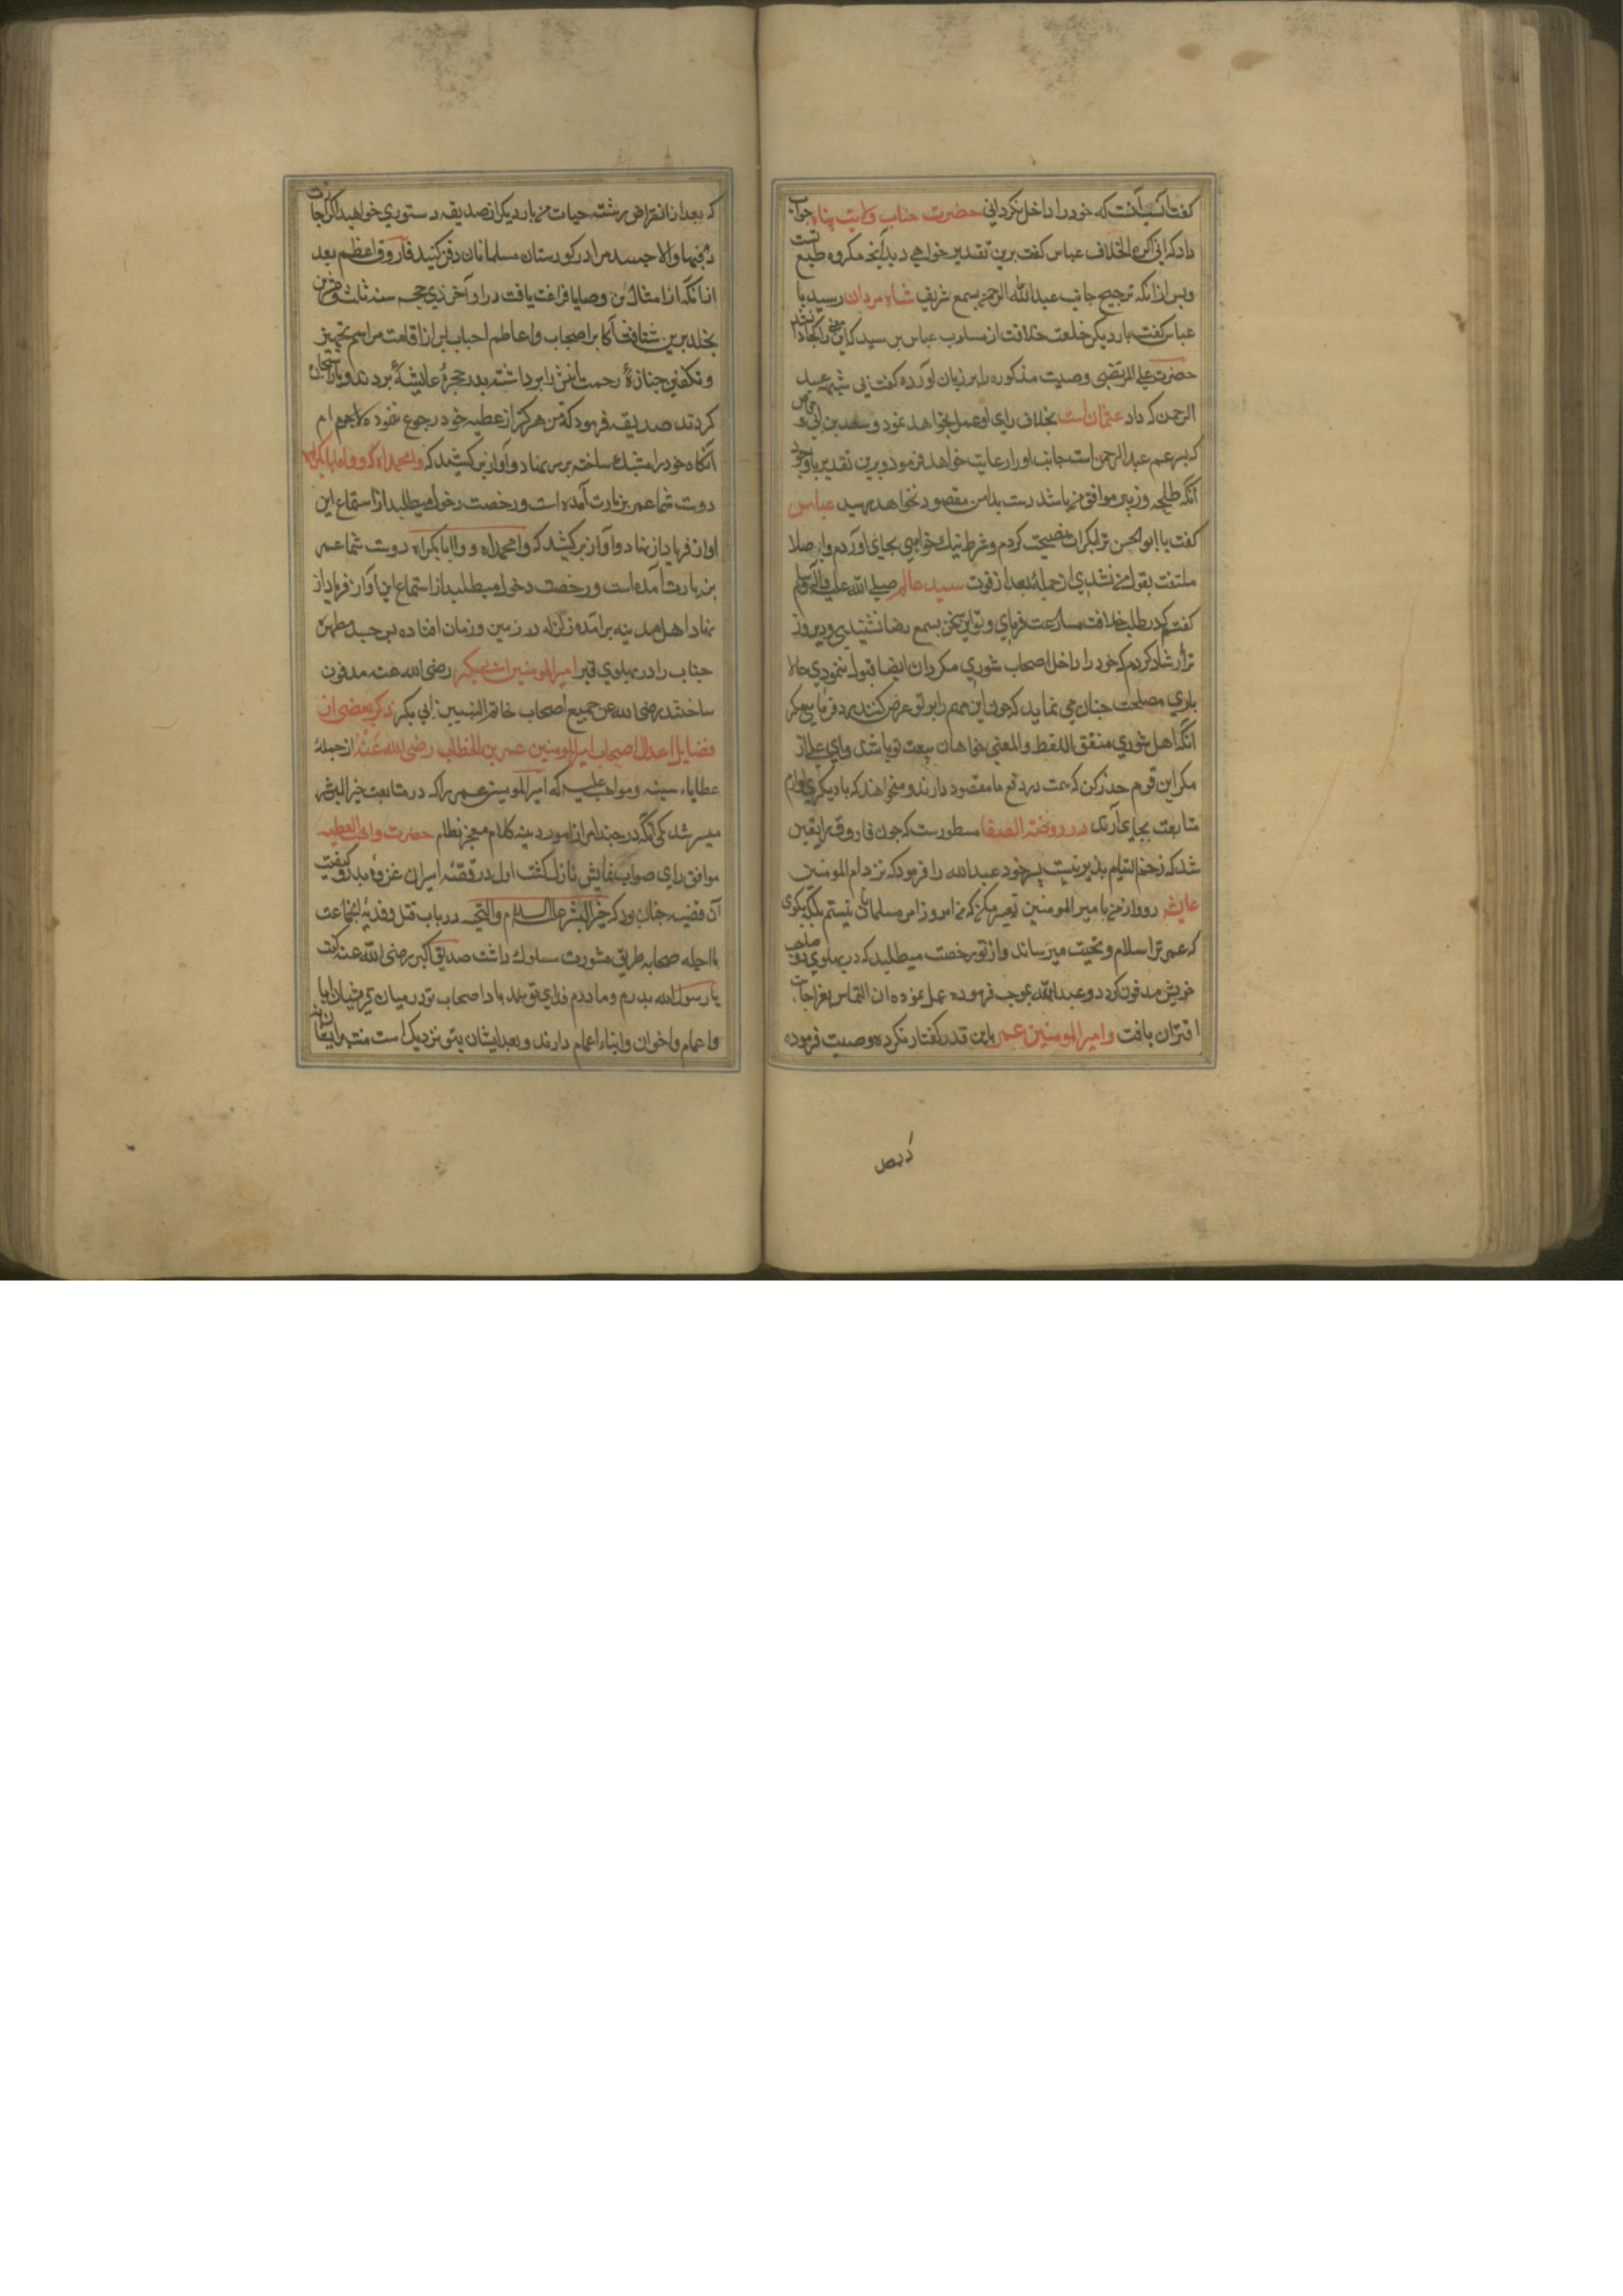 گفت آنست که خود را داخل نکردانی حضرت جناب ولایت پناه جواب
داد که انی اکره الخلاف عباس گفت برین تقدیر خواهی دید آنچه مکروه طبع تست
وپس ازانکه ترجیح جانب عبدالله الرحمن بسمع شریف شاه مردان رسید با
عباس گفت بار دیکر خلعت خلافت از مسلوب عباس پرسید که این معنی از کجا
حضرت علی المرتضی وصیت مذکوره را بر زبان آورده گفت بی شبهه عبد
الرحمن که داد عثمان است بخلاف رای او عمل نخواهد نمود وسعد بن ابی وقاص
که پسر عم عبد الرحمن است جانب اورا رعایت خواهد فرمود وبرین تقدیر باوجود
آنکه طلحه وزبیر موافق من باشند دست بدامن مقصود نخواهد رسید عباس
گفت یا ابوالحسن ترا بکرات نصیحت کردم وشرط نیک خواهی بجای آوردم واصلا
ملتفت بقول من نشدی ازجمله بعد از فوت سید عالم صلی الله علیه وآله وسلم
گفتم که در طلب خلافت مسارعت فرمای وتو این سخن بسمع رضا نشنیدی ودیروز
ترا ارشاد کردم که خود را داخل اصحاب شوری مکردان ایضا قبول ننمودی حالا
باری مصلحت چنان می نماید که چون این مهم را بر تو عرض کنند رد فرمایی مکر
آنکه اهل شوری متفق اللفظ والمعنی خواهان بیعت تو باشند وای علی از
مکر این قوم حذر کن که همت بر دفع ما مقصود دارند ومیخواهند که با دیکری لوازم
متابعت بجای آرند در روضة الصفا مسطورست که چون فاروق را یقین
شد که زخم التیام پذیر نیست پسر خود عبدالله را فرمود که نزد ام المومنین
عایشه رو واز من با میر المومنین تعبیر مکن که من امروز امیر مسلمانان نیستم بلکه بکوی
که عمر ترا سلام وتحیت میرساند واز تو رخصت میطلبد که در پهلوی دو صاحب
خویش مدفون کردد وعبدالله بموجب فرموده عمل نموده ان التماس بعز اجابت
اقتران یافت وامیر المومنین عمر باین قدر گفتار نکرده وصیت فرموده
که بعد از انقراض رشته حیات من بار دیکر از صدیقه دستوری خواهید اگر اجازت
فبها والا جسد مرا در کورستان مسلمانان دفن کنید فاروق اعظم بعد
ازانکه از امثال این وصایا فراغت یافت در اواخر ذی حجه سنه ثلث وعشرین
بخلد برین شتافت اکابر اصحاب واعاظم احباب بعد از اقامت مراسم تجهیز
وتکفین جنازهٔ رحمت انفس را برداشته بدر حجرهٔ عایشه بردند وباز استجازه
کردند صدیقه فرمود که من هرکز از عطیه خود رجوع ننمود
آنکاه خود را ساخته بر سر نهاد وآواز برکشید که وامحمداه وواابابکراه
دوست شما عمر بزیارت آمده است ورخصت دخول میطلبد از استماع این
اواز فریاد از نهاد وآواز برکشید که وامحمداه وواابابکراه دوست شما عمر
بزیارت آمده است ورخصت دخول میطلبد از استماع این آواز فریاد از
نهاد اهل مدینه برآمده زلزله در زمین وزمان افتاده پس جسد مطهر
جناب را در پهلوی قبر امیر المومنین ابی بکر رضی الله عنه مدفون
ساختند رضی الله عن جمیع اصحاب خاتم النبیین ابی بکر ذکر بعضی از
فضایل اعدل اصحاب امیر المومنین عمر بن الخطاب رضی الله عنه ازجملهٔ
عطایاء سنیه ومواهب علیه که امیر المومنین عمر را که در متابعت خیر البشر
میسر شد یکی آنکه در چند امر از امور دینیه کلام معجز نظام حضرت واهب العطیه
موافق رای صواب نمایش نازل گشت اول در قصهٔ اسیران غزوهٔ بدر وکیفیت
آن قضیه چنان بود که خیر البشر علیه السلام والتحیه در باب قتل وفدیهٔ انجماعت
با اجله صحابه طریق مشورت مسلوک داشت صدیق اکبر رضی الله عنه گفت
یا رسول الله پدرم ومادرم فدای تو باد اصحاب تو در میان قرشیان ابا
واعمام واخوان وابناء اعمام دارند وبعد ایشان بتو نزدیک است